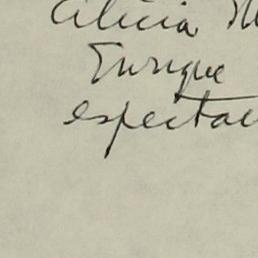 Alicia
Enrique
espectac